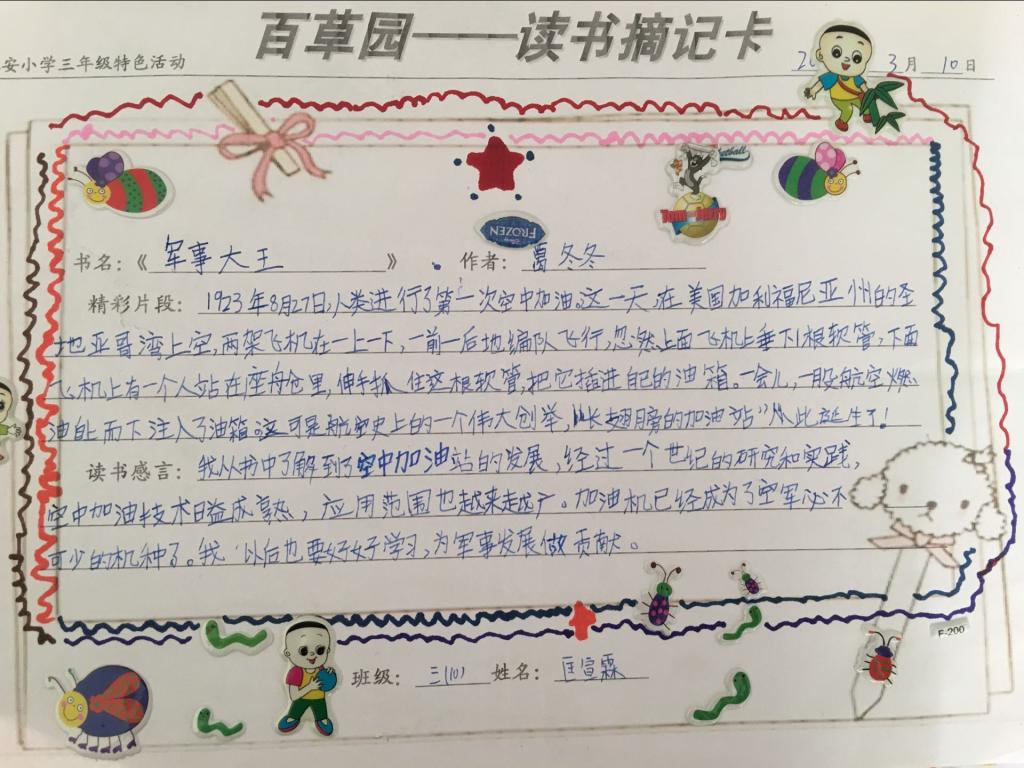 百草园——读书摘记卡
安小学三年级特色活动 3月10日
Football
Tom and Jerry
FROZEN
书名：《军事大王》 作者：葛冬冬
精彩片段：1923年8月27日，人类进行了第一次空中加油。这一天，在美国加利福尼亚州的圣
地亚哥湾上空，两架飞机在一上一下，一前一后地编队飞行，忽然上面飞机上垂下1根软管，下面
飞机上有一个人站在座舟仓里，伸手抓住这根软管，把它插进自己的油箱。一会儿，一股航空燃
油自上而下注入了油箱。这可是航空史上的一个伟大创举，"长翅膀的加油站"从此诞生了！
读书感言：我从书中了解到了空中加油站的发展，经过一个世纪的研究和实践，
空中加油技术日益成熟，应用范围也越来越广。加油机已经成为了空军必不
可少的机种了。我以后也要好好学习，为军事发展做贡献。
F-200
班级：三(10) 姓名：匡宣霖